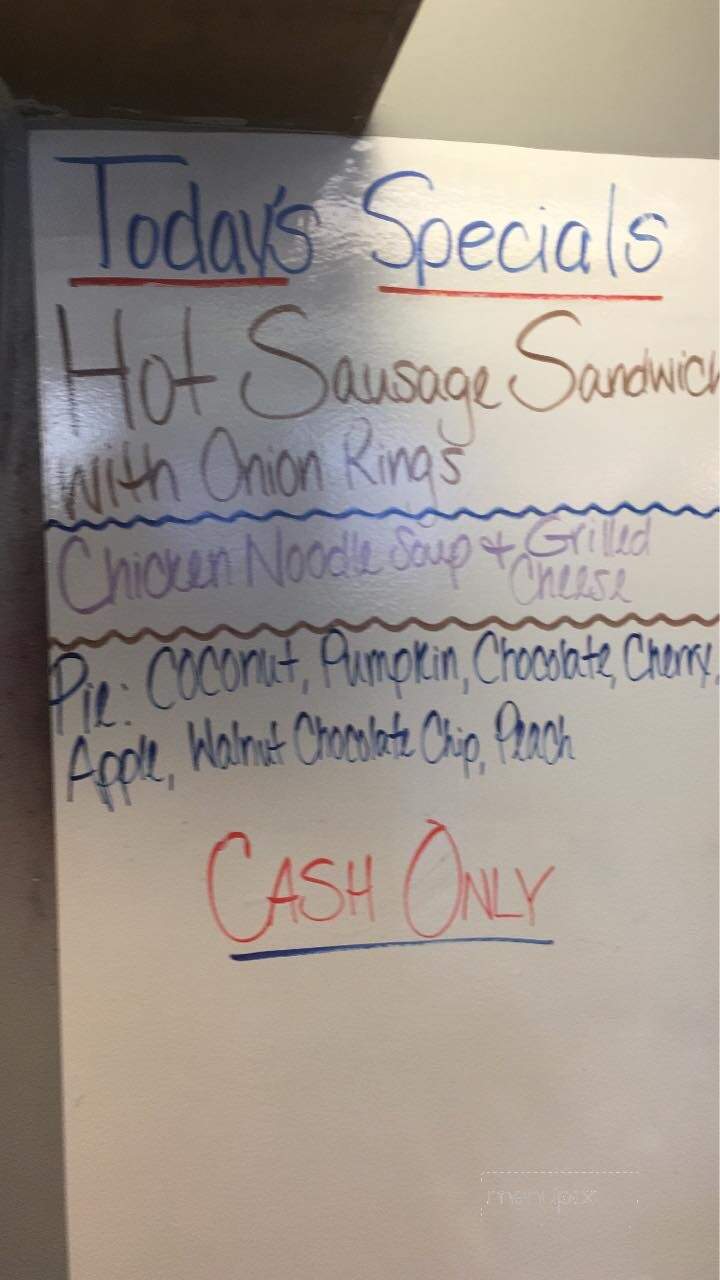 Today's Specials
Hot Sausage Sandwich
with Onion Rings
Chicken Noodle Soup + Grilled
Cheese
Pie: Coconut, Pumpkin, Chocolate, Cherry,
Apple, Walnut Chocolate Chip, Peach
CASH ONLY
menupix